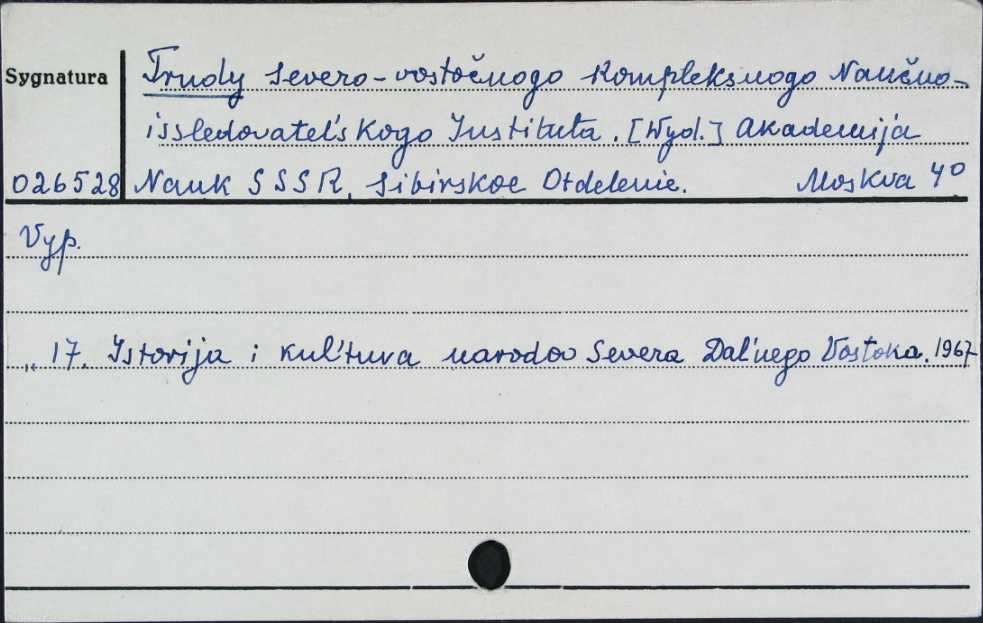 Sygnatura
Trudy Severo-vostočnogo Kompleksnogo Naučno-
issledovatel'skogo Instituta. [Wyd.] Akademija
026528 Nauk SSSR, Sibirskoe Otdelenie. Moskva 4°
Vyp.
„ 17. Istorija i kul'tura narodov Severa Dal'nego Vostoka. 1967